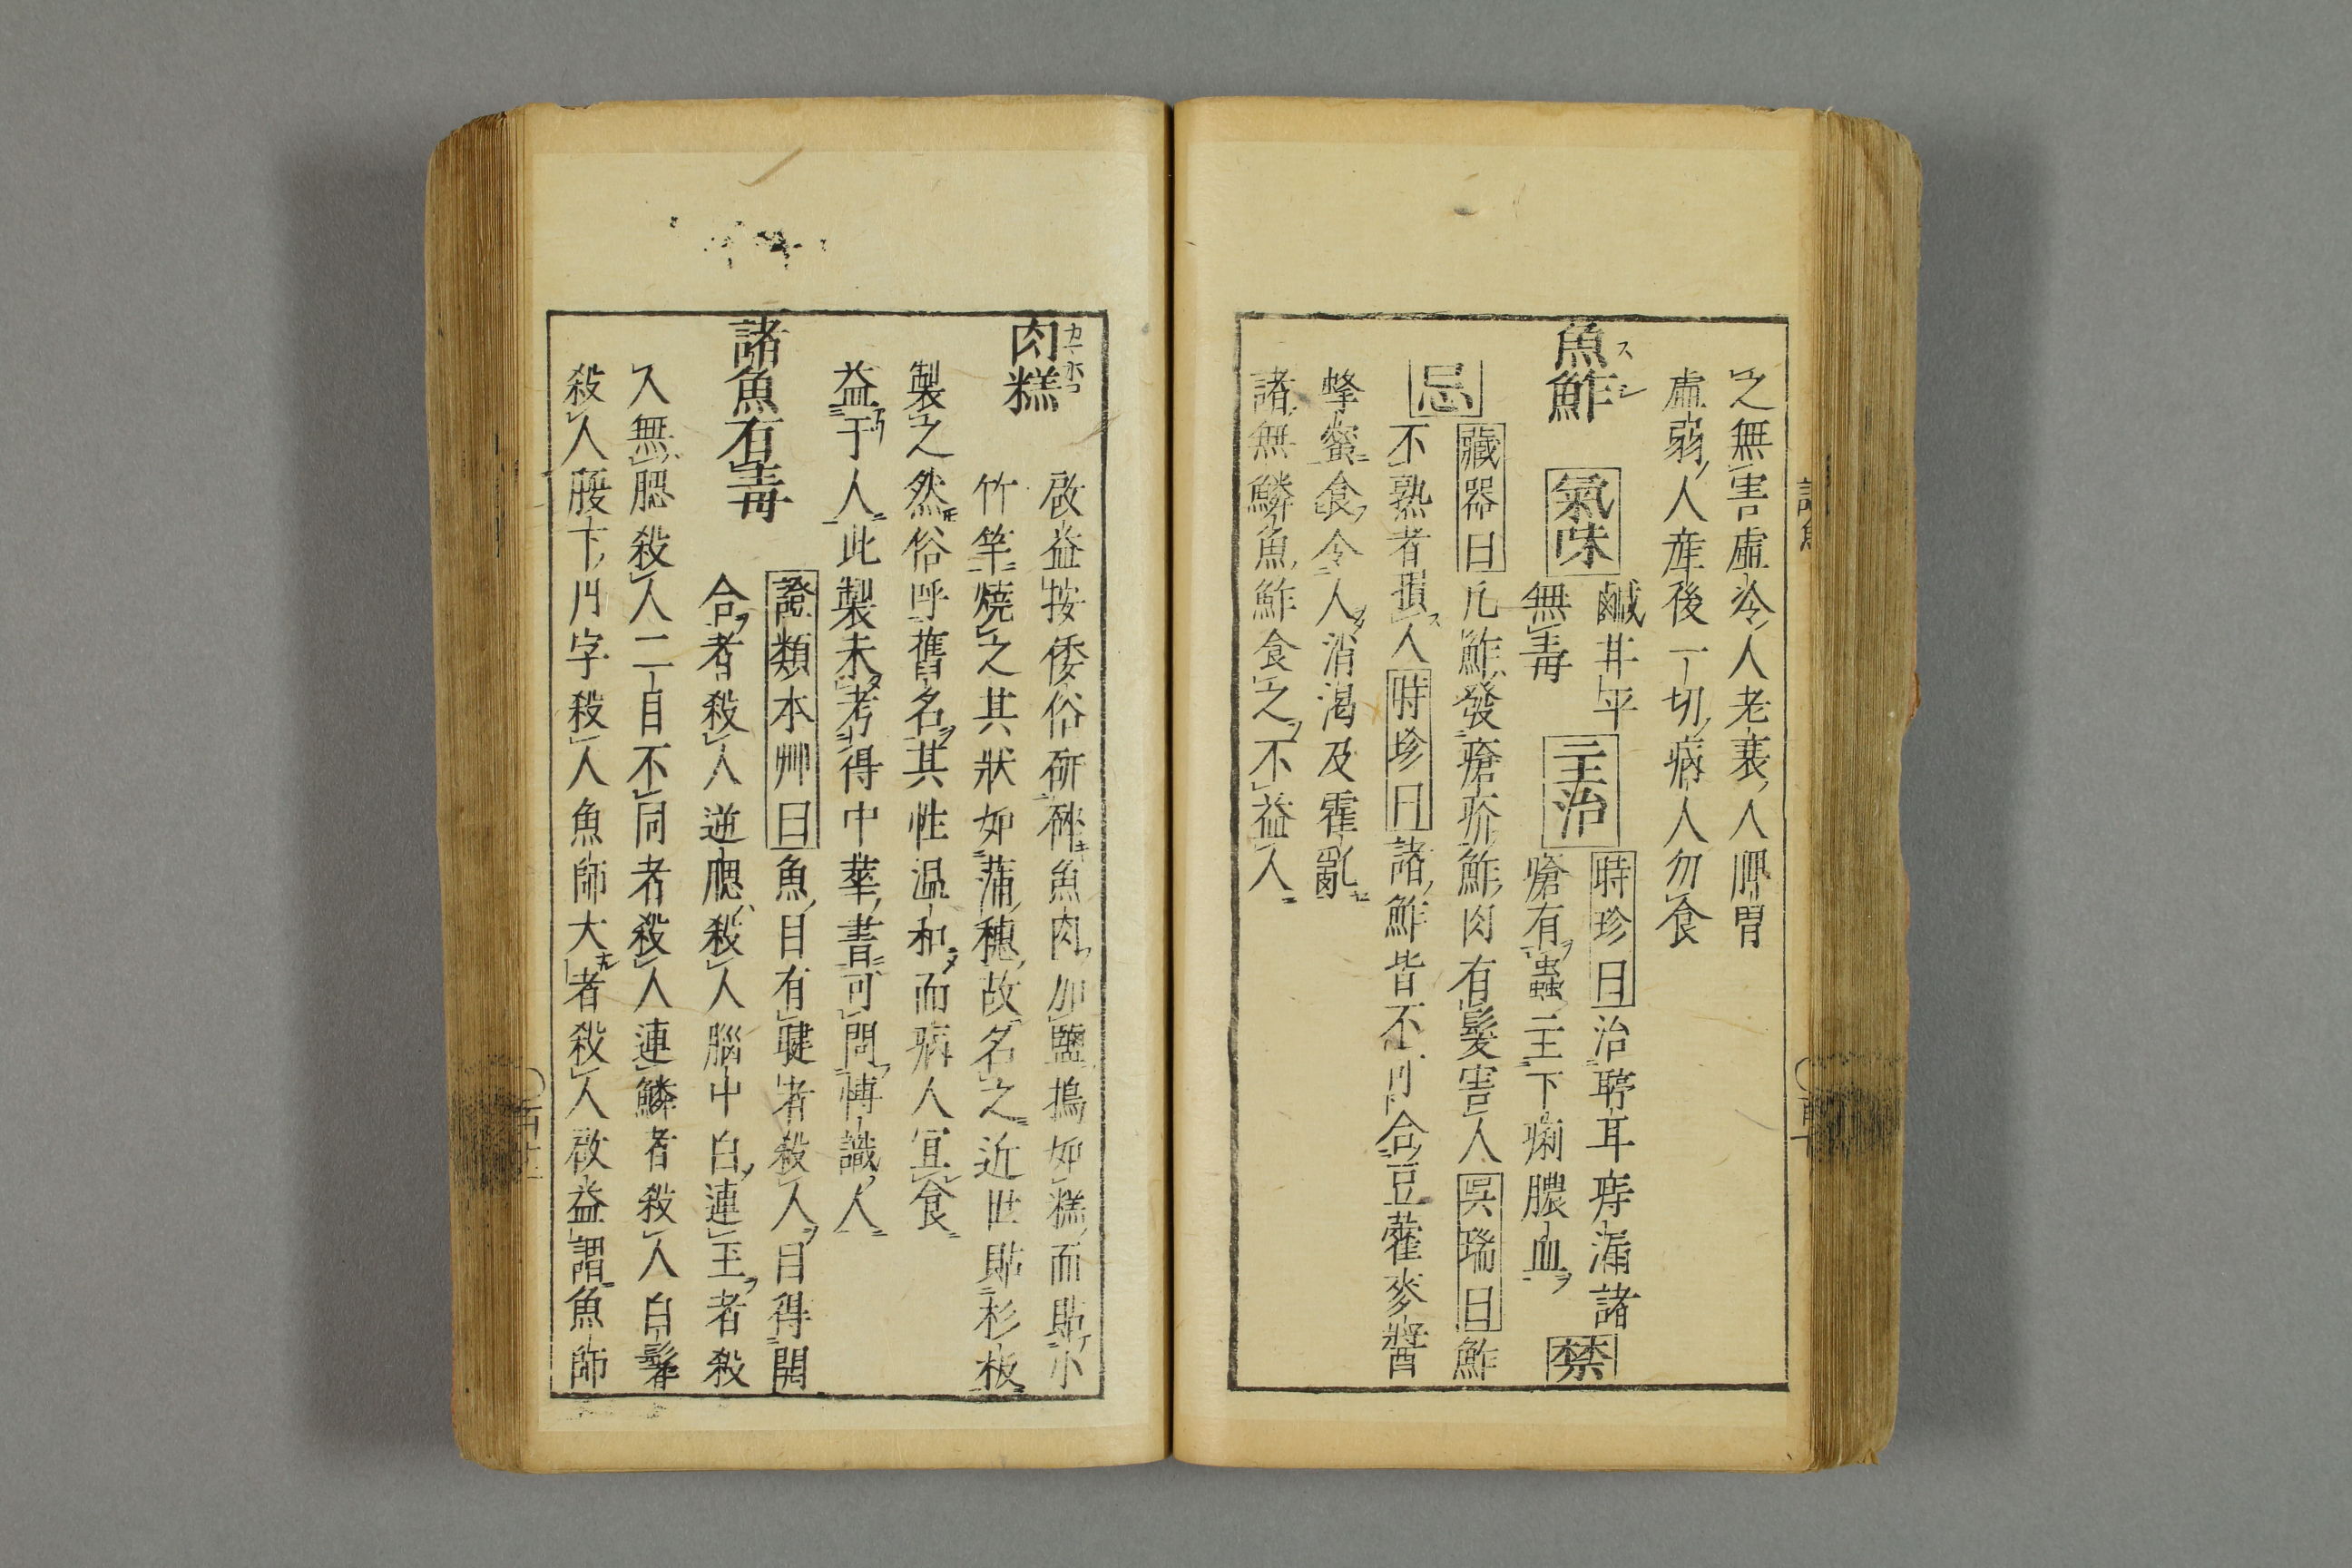 之無害虛冷人老衰人脾胃
虛弱人產後一切病人勿食
魚鮓
スシ
氣味
鹹甘平
無毒
主治
時珍曰治聤耳痔漏諸
瘡有蟲主下痢膿血
禁
忌
藏器曰凡鮓發瘡疥鮓肉有髮害人吳瑞曰鮓
不熟者損人時珍曰諸鮓皆不可合豆藿麥醬
蜂蜜食令人消渴及霍亂
諸無鱗魚鮓食之不益人
肉糕
カマホコ
啟益按倭俗研碎魚肉加鹽搗如糕而貼小
竹竿燒之其狀如蒲穗故名之近世貼杉板
製之然俗呼舊名其性温和而病人宜食
益于人此製未考得中華書可問博識人
諸魚有毒
證類本艸曰魚目有睫者殺人目得開
合者殺人逆腮殺人腦中白連玉者殺
人無腮殺人二目不同者殺人連鱗者殺人白鬐
殺人腹下丹字殺人魚師大者殺人啟益謂魚師